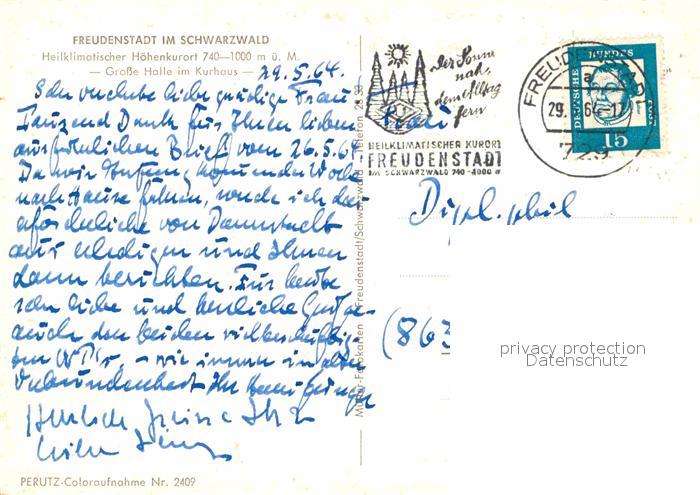 FREUDENSTADT IM SCHWARZWALD
Heilklimatischer Höhenkurort 740—1000 m ü. M.
— Große Halle im Kurhaus —
29.5.64.
Sehr verehrte liebe gnädige Frau!
Tausend Dank für Ihren lieben
ausführlichen Brief vom 26.5.64
Da wir Anfang kommender Woche
nach Hause fahren, werde ich das
erforderliche von Darmstadt
aus erledigen und Ihnen
dann berichten. Für heute
sehr liebe und herzliche Grüße
auch den beiden
- wie immer in alter
Verbundenheit Ihr
Herzliche Grüsse Ihre
PERUTZ-Coloraufnahme Nr. 2409
Freudenstadt/Schwarzwald
Telefon
Der Sonne
nah,
dem Alltag
fern
HEILKLIMATISCHER KURORT
FREUDENSTADT
IM SCHWARZWALD 740-1000 m
FREUDENSTADT
a
29.5.64-17
729
DEUTSCHE BUNDESPOST
15
Frau
Dipl.
(863
privacy protection
Datenschutz